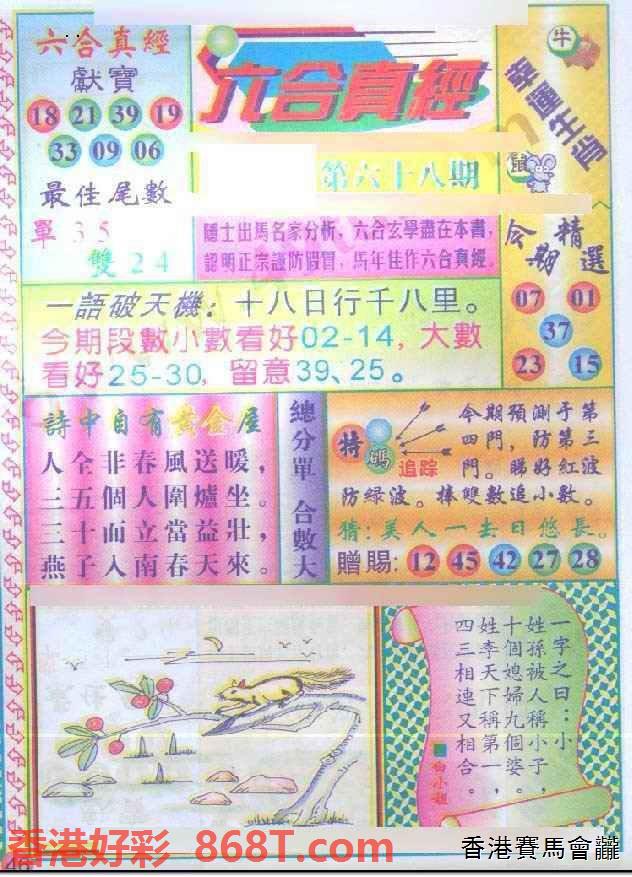 六合真經
獻寶
18 21 39 19
33 09 06
最佳尾數
單 3 5
雙 2 4
六合真經
第六十八期
隱士出馬名家分析，六合玄學盡在本書，
認明正宗謹防假冒，馬年佳作六合真經。
牛
幸運生肖
鼠
今期精選
07 01
37
23 15
一語破天機：十八日行千八里。
今期段數小數看好02-14，大數
看好25-30，留意39、25。
詩中自有黃金屋
人全非春風送暖，
三五個人圍爐坐。
三十而立當益壯，
燕子入南春天來。
總分單 合數大
特碼追踪
今期預測于第
四門，防第三
門。睇好紅波
防緑波。捧雙數追小數。
猜：美人一去日悠長。
贈賜：12 45 42 27 28
一字之曰：小
姓孫被人稱小子，
十個媳婦九個婆。
姓李天下稱第一，
四三相連又相合。
白小姐
香港好彩 868T.com
香港賽馬會
46